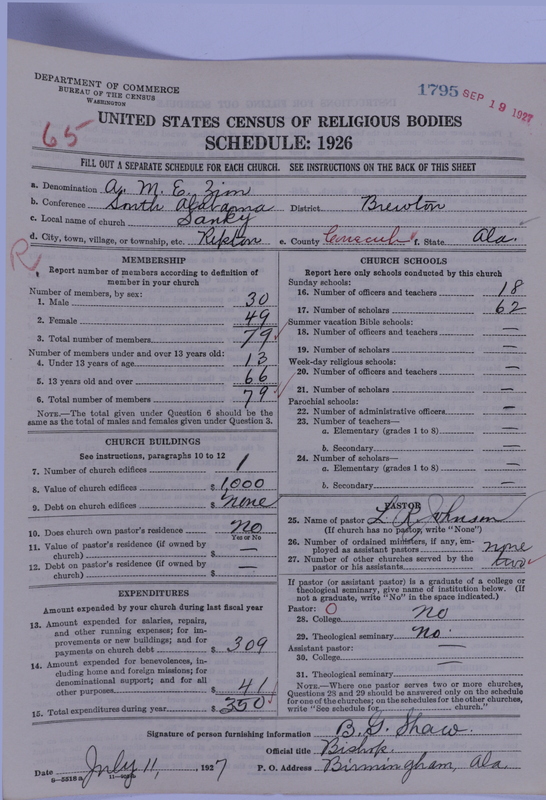 DEPARTMENT OF COMMERCE
BUREAU OF THE CENSUS
WASHINGTON
1795 SEP 19 1927
65
UNITED STATES CENSUS OF RELIGIOUS BODIES
SCHEDULE: 1926
FILL OUT A SEPARATE SCHEDULE FOR EACH CHURCH. SEE INSTRUCTIONS ON THE BACK OF THIS SHEET
a. Denomination A. M. E. Zion
b. Conference South Alabama District Brewton
c. Local name of church Sanky
d. City, town, village, or township, etc. Repton e. County Conecuh f. State Ala.
R
MEMBERSHIP
Report number of members according to definition of
member in your church
Number of members, by sex:
1. Male 30
2. Female 49
3. Total number of members 79
Number of members under and over 13 years old:
4. Under 13 years of age 13
5. 13 years old and over 66
6. Total number of members 79
NOTE.—The total given under Question 6 should be the
same as the total of males and females given under Question 3.
CHURCH BUILDINGS
See instructions, paragraphs 10 to 12
7. Number of church edifices 1
8. Value of church edifices $ 1,000
9. Debt on church edifices $ none
10. Does church own pastor's residence no
Yes or No
11. Value of pastor's residence (if owned by
church) $ —
12. Debt on pastor's residence (if owned by
church) $ —
EXPENDITURES
Amount expended by your church during last fiscal year
13. Amount expended for salaries, repairs,
and other running expenses; for im-
provements or new buildings; and for
payments on church debt $ 309
14. Amount expended for benevolences, in-
cluding home and foreign missions; for
denominational support; and for all
other purposes $ 41
15. Total expenditures during year $ 350
CHURCH SCHOOLS
Report here only schools conducted by this church
Sunday schools:
16. Number of officers and teachers 18
17. Number of scholars 62
Summer vacation Bible schools:
18. Number of officers and teachers —
19. Number of scholars —
Week-day religious schools:
20. Number of officers and teachers —
21. Number of scholars —
Parochial schools:
22. Number of administrative officers —
23. Number of teachers—
a. Elementary (grades 1 to 8) —
b. Secondary —
24. Number of scholars—
a. Elementary (grades 1 to 8) —
b. Secondary —
PASTOR
25. Name of pastor L. R. Johnson
(If church has no pastor, write "None")
26. Number of ordained ministers, if any, em-
ployed as assistant pastors none
27. Number of other churches served by the
pastor or his assistants two
If pastor (or assistant pastor) is a graduate of a college or
theological seminary, give name of institution below. (If
not a graduate, write "No" in the space indicated.)
Pastor: O
28. College no
29. Theological seminary no.
Assistant pastor: —
30. College —
31. Theological seminary
NOTE.—Where one pastor serves two or more churches,
Questions 28 and 29 should be answered only on the schedule
for one of the churches; on the schedules for the other churches,
write "See schedule for church."
Signature of person furnishing information B. G. Shaw.
Official title Bishop.
Date July 11, 1927 P. O. Address Birmingham, Ala.